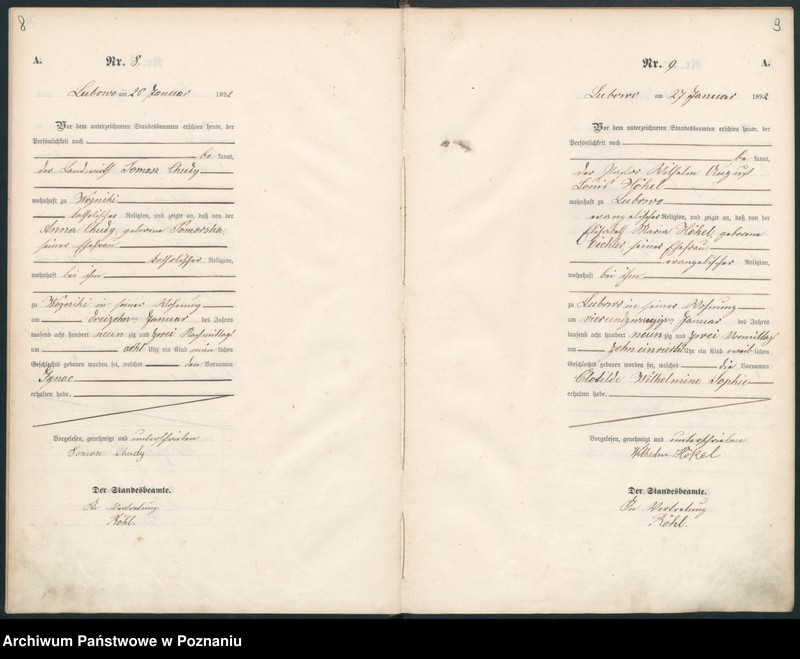 8
A.
Nr. 8.
Lubowo am 20 Januar 1892
Vor dem unterzeichneten Standesbeamten erschien heute, der
Persönlichkeit nach
be kannt,
der Landwirth Tomasz Chudy
wohnhaft zu Woźniki
katholischer Religion, und zeigte an, daß von der
Anna Chudy, geborene Pomorska,
seiner Ehefrau
katholischer Religion,
wohnhaft bei ihm
zu Woźniki in seiner Wohnung
am dreizehn ten Januar des Jahres
tausend acht hundert neun zig und zwei Nachmittags
um acht Uhr ein Kind männ lichen
Geschlechts geboren worden sei, welches den Vornamen
Ignac
erhalten habe.
Vorgelesen, genehmigt und unterschrieben
Tomasz Chudy
Der Standesbeamte.
In Vertretung
Röhl.
9
Nr. 9
A.
Lubowo am 27 Januar 1892
Vor dem unterzeichneten Standesbeamten erschien heute, der
Persönlichkeit nach
be kannt,
der Pastor Wilhelm August
Louis Hökel
wohnhaft zu Lubowo
evangelischer Religion, und zeigte an, daß von der
Elisabeth Maria Hökel, geborene
Eichler seiner Ehefrau
evangelischer Religion,
wohnhaft bei ihm
zu Lubowo in seiner Wohnung
am vierundzwanzig ten Januar des Jahres
tausend acht hundert neun zig und zwei Vormittags
um zehn einviertel Uhr ein Kind weib lichen
Geschlechts geboren worden sei, welches die Vornamen
Clotilde Wilhelmine Sophie
erhalten habe.
Vorgelesen, genehmigt und unterschrieben
Wilhelm Hökel
Der Standesbeamte.
In Vertretung
Röhl.
Archiwum Państwowe w Poznaniu